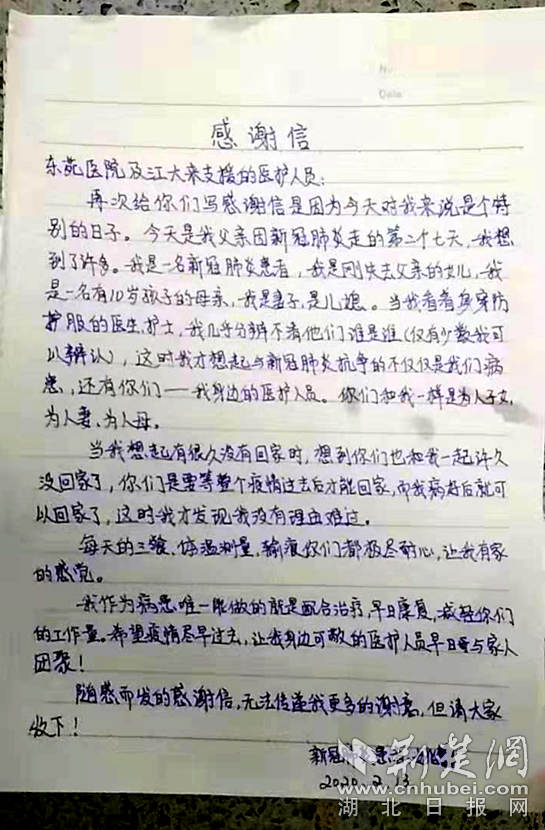 No.
Date
感谢信
东苑医院及江大来支援的医护人员:
再次给你们写感谢信是因为今天对我来说是个特
别的日子。今天是我父亲因新冠肺炎走的第二个七天,我想
到了许多。我是一名新冠肺炎患者,我是刚失去父亲的女儿,我
是一名有10岁孩子的母亲,我是妻子,是儿媳。当我看着身穿防
护服的医生、护士,我几乎分辨不清他们谁是谁(仅有少数我可
以辨认),这时我才想起与新冠肺炎抗争的不仅仅是我们病
患,还有你们——我身边的医护人员。你们和我一样是为人子女,
为人妻、为人母。
当我想起有很久没有回家时,想到你们也和我一起许久
没回家了,你们是要等整个疫情过去后才能回家,而我病好后就可
以回家了,这时我才发现我没有理由难过。
每天的三餐、体温测量、输液你们都极尽耐心,让我有家
的感觉。
我作为病患唯一能做的就是配合治疗,早日康复,减轻你们
的工作量。希望疫情尽早过去,让我身边可敬的医护人员早日与家人
团聚!
随感而发的感谢信,无法传递我更多的谢意,但请大家
收下!
新冠肺炎患者
2020.2.13
新楚網
www.cnhubei.com
湖北日报网